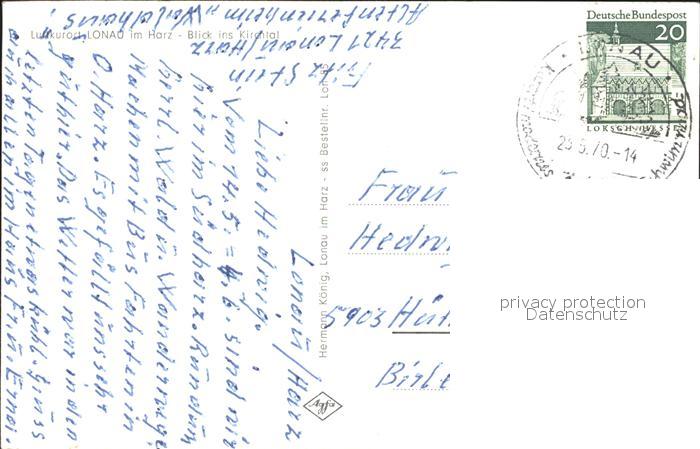 Luftkurort LONAU im Harz - Blick ins Kirchtal
Fritz Stein
3421 Lonau/Harz
Altenferienheim „Waldhaus"
Lonau/Harz
Liebe Hedwig.
Vom 14.5. = 4.6. sind wir
hier im Südharz. Rundum
Berg. Wald u. Wanderwege
Machen mit Bus Fahrten in
O. Harz. Es gefällt uns sehr
gut hier. Das Wetter war in den
letzten Tagen etwas kühl. Gruss
an alle im Haus Fr. u. Erna.
Hermann König, Lonau im Harz - ss Bestellnr. Lonau
Agfa
Deutsche Bundespost
20
LORSCH/HESSEN
LONAU
29.5.70.-14
modernes
Frau
Hedw
5903
privacy protection
Datenschutz